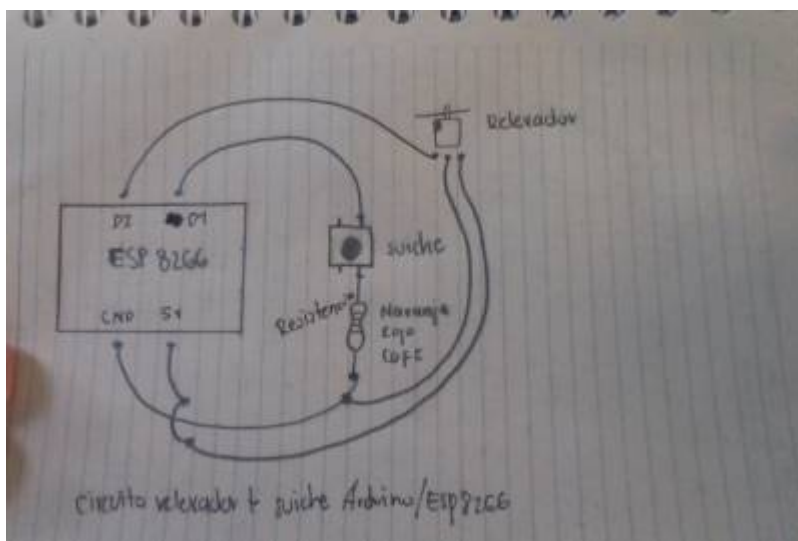 Relevador
D2 D1
ESP 8266
suiche
Resistencia
Naranja
Rojo
CAFE
GND 5V
Circuito relevador + suiche Arduino/ESP8266